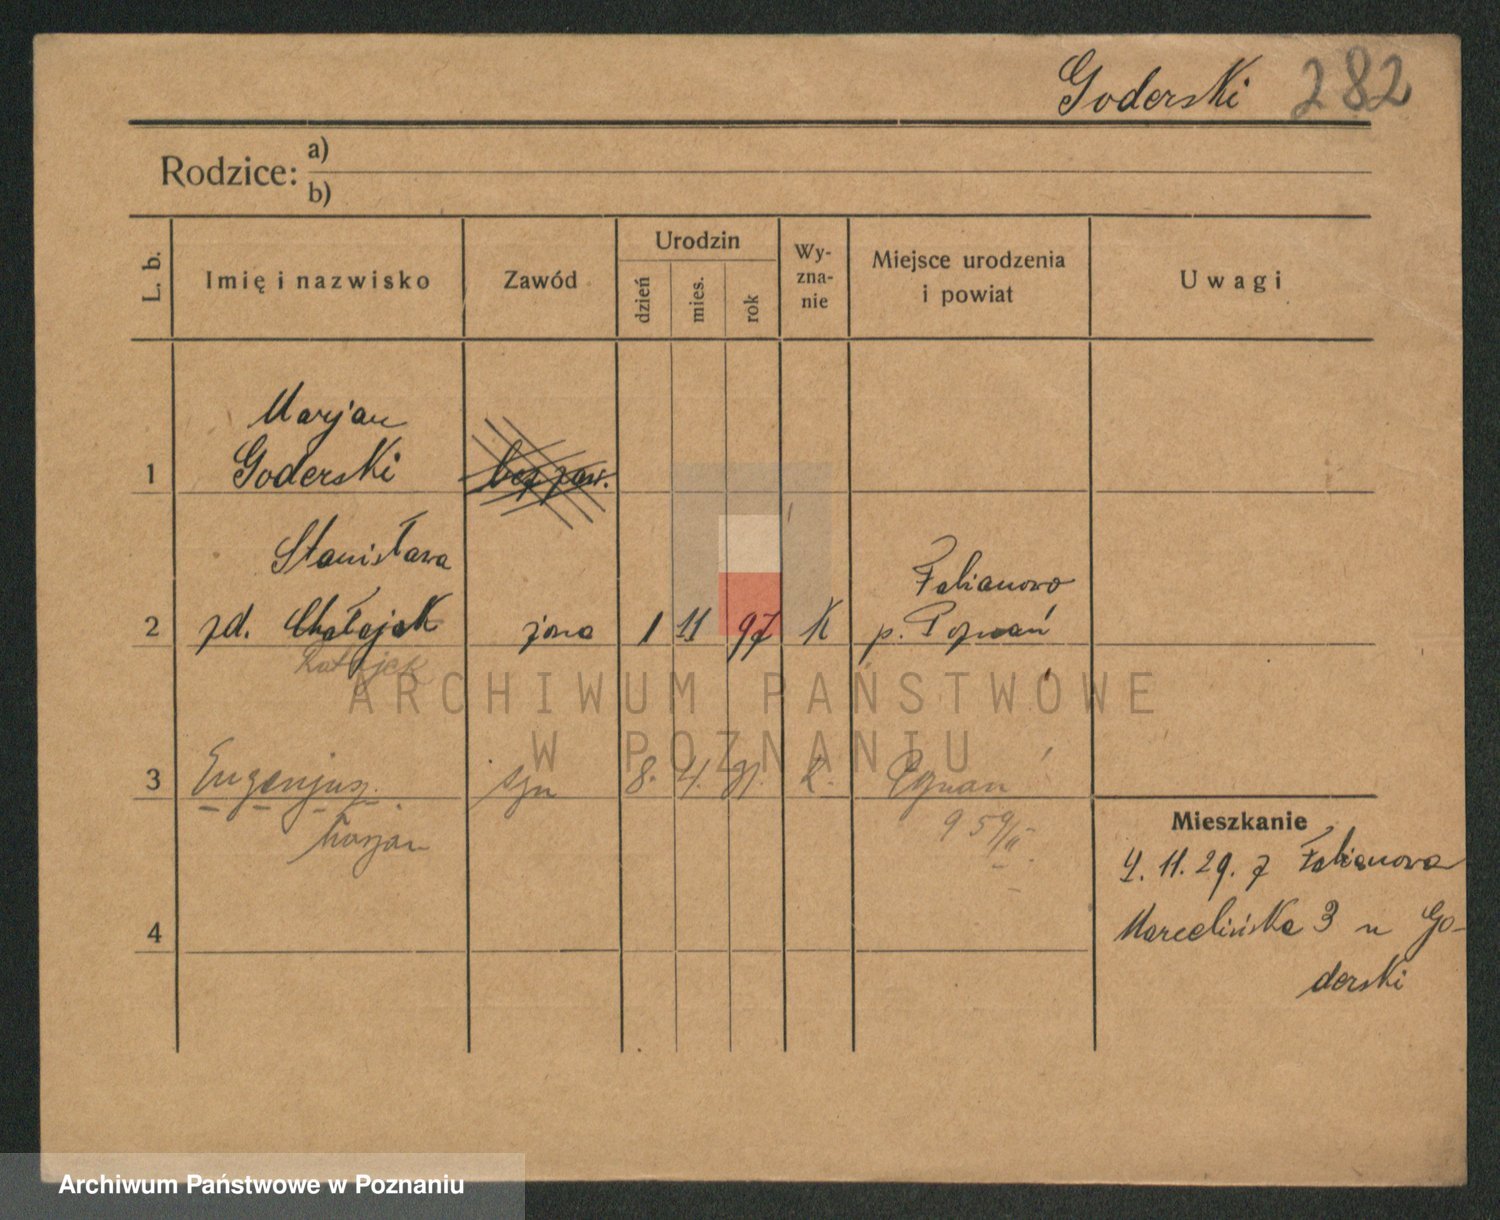 Goderski 282
Rodzice: a)
b)
L. b.
Imię i nazwisko
Zawód
Urodzin
dzień
mies.
rok
Wy-
zna-
nie
Miejsce urodzenia
i powiat
Uwagi
Marjan
1 Goderski bez zaw.
Stanisława Fabianowo
2 zd. Chałajak żona 1 11 97 K p. Poznań
Ratajczak
3 Eugenjusz syn 8. 4. K. Poznań
Marjan
4
Mieszkanie
4. 11. 29. z Fabianowa
Marcelińska 3 u Go-
derski
ARCHIWUM PAŃSTWOWE
W POZNANIU
Archiwum Państwowe w Poznaniu